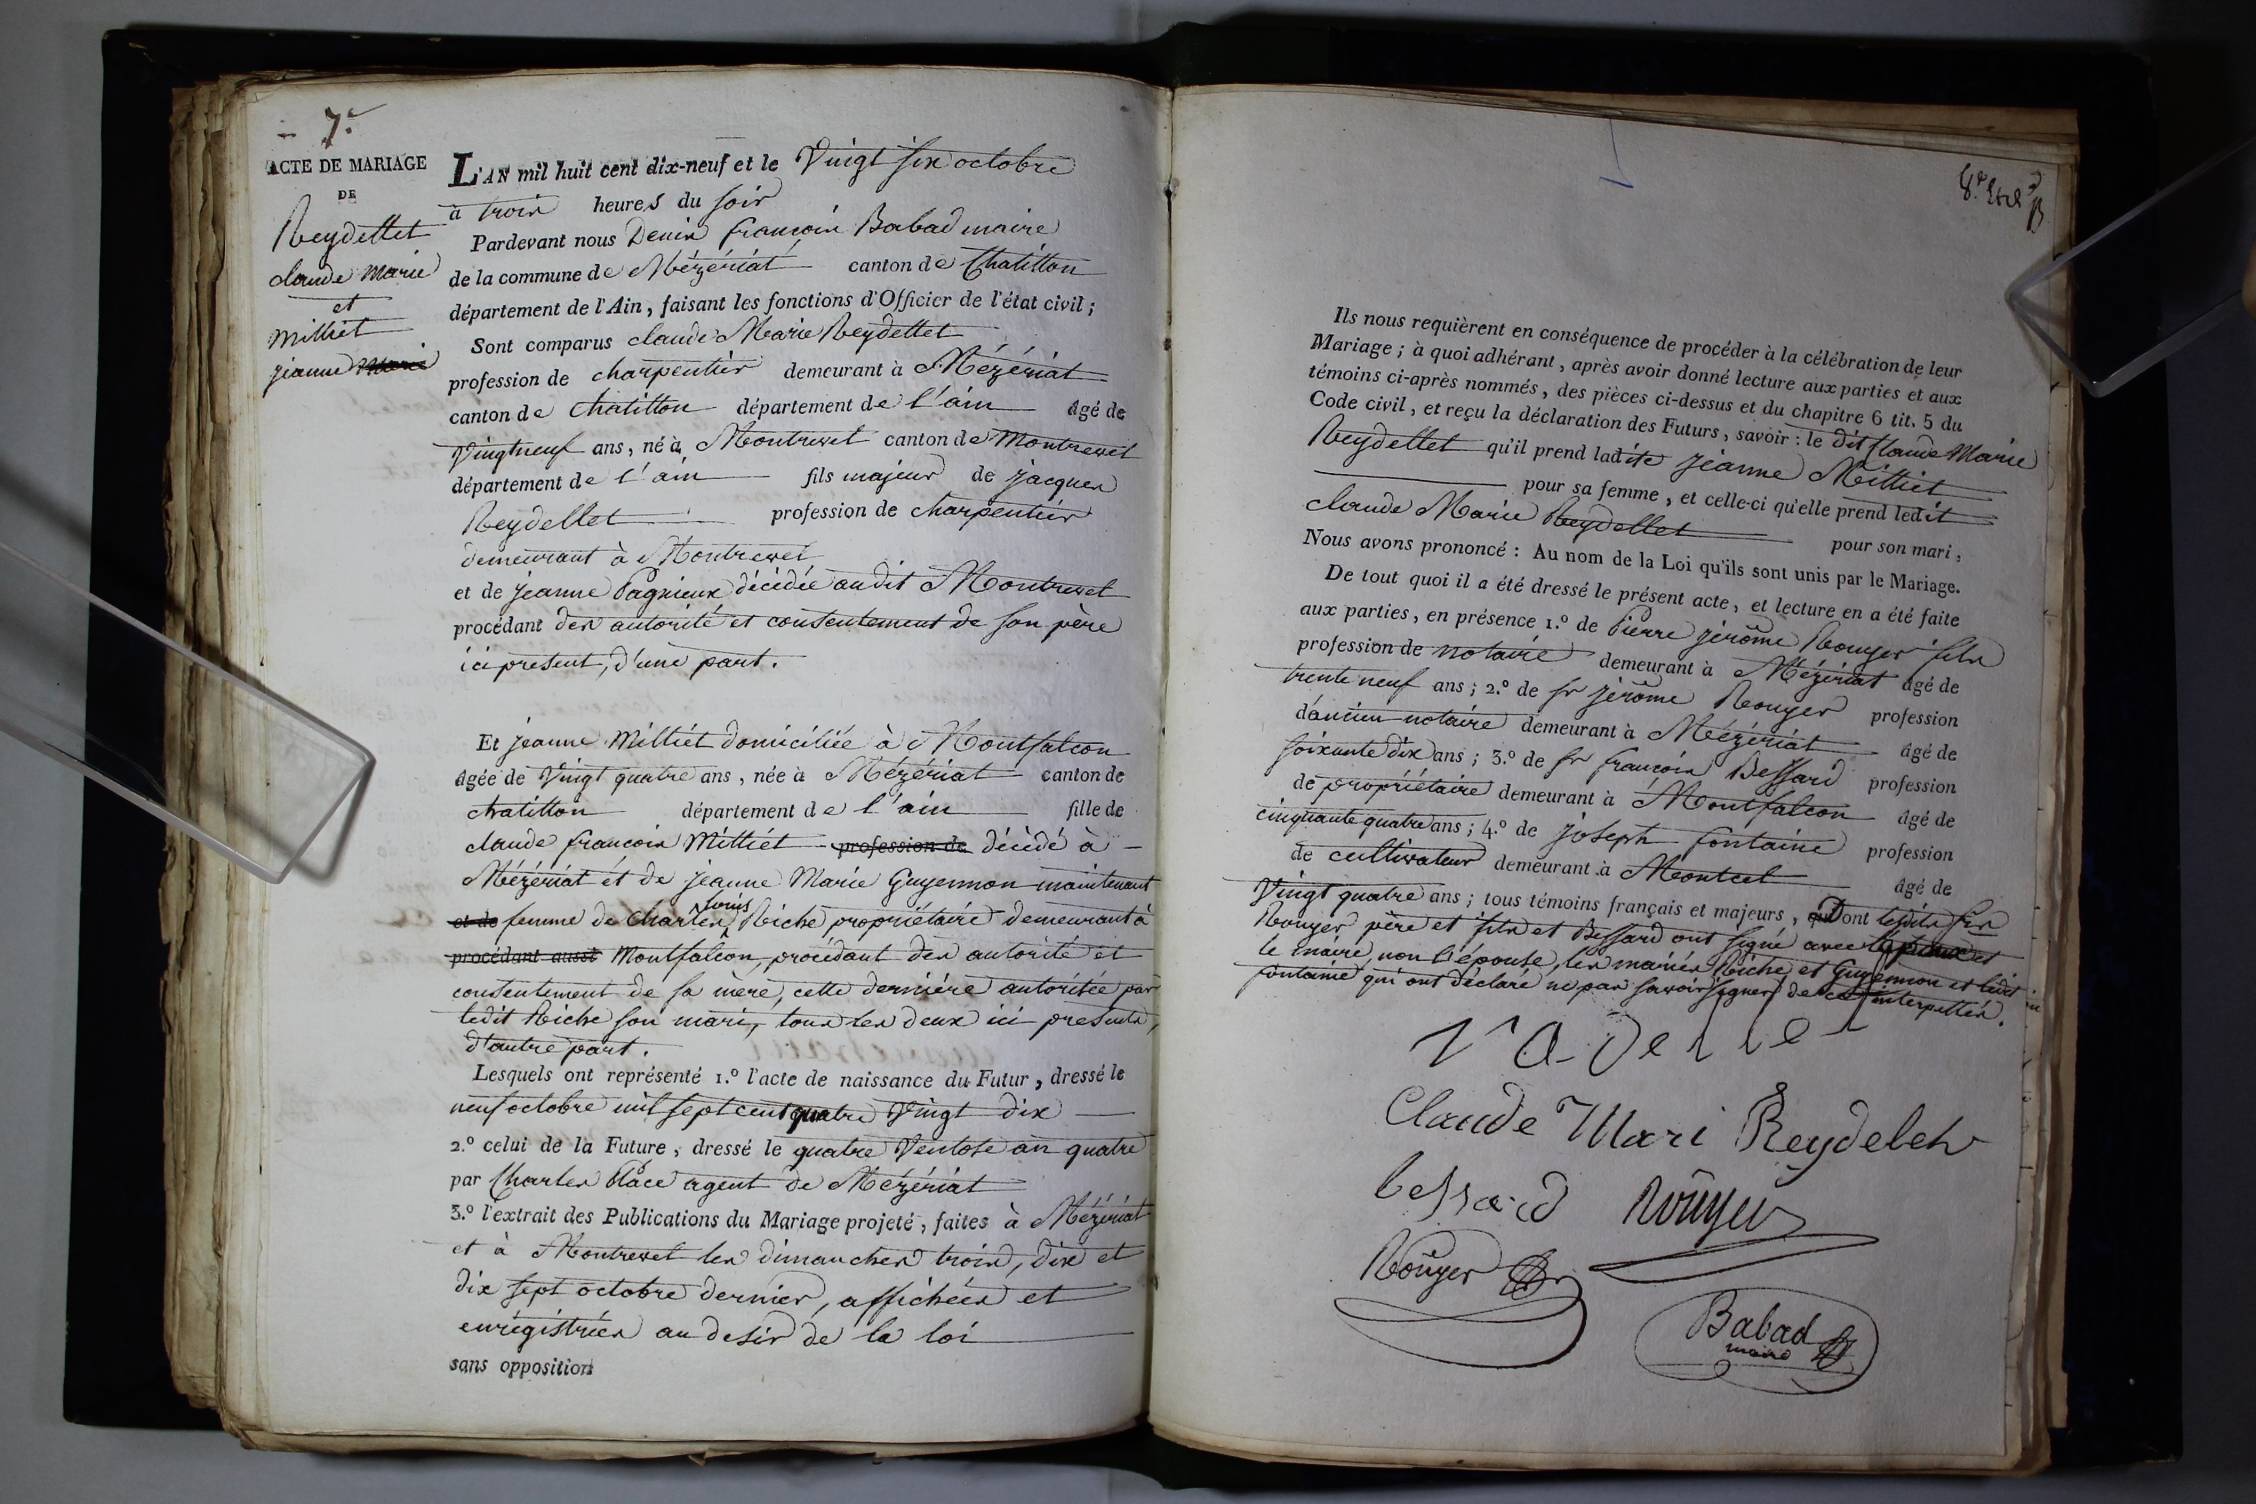 7e
ACTE DE MARIAGE
DE
Reydellet
claude Marie
et
Milliet
jeanne Marie
L'AN mil huit cent dix-neuf et le Vingt six octobre
à trois heures du soir
Pardevant nous Denis francois Babad maire
de la commune de Mézériat canton de Chatillon
département de l'Ain, faisant les fonctions d'Officier de l'état civil;
Sont comparus claude Marie Reydellet
profession de charpentier demeurant à Mézériat
canton de chatillon département de l'ain âgé de
Vingtneuf ans, né à Montrevel canton de Montrevel
département de l'ain fils majeur de jacques
Reydellet profession de charpentier
demeurant à Montrevel
et de jeanne Pagnieux décédée audit Montrevel
procédant des autorité et consentement de son père
ici present, d'une part.
Et jeanne Milliet domiciliée à Montfalcon
âgée de Vingt quatre ans, née à Mézériat canton de
chatillon département de l'ain fille de
claude francois Milliet profession de décédé à
Mézériat et de jeanne Marie Guyennon maintenant
et de femme de Charles louis Riche propriétaire demeurant à
procédant aussi Montfalcon, procédant des autorité et
consentement de sa mère, cette dernière autorisée par
ledit Riche son mari, tous les deux ici presents,
d'autre part.
Lesquels ont représenté 1.º l'acte de naissance du Futur, dressé le
neuf octobre mil sept cent quatre Vingt dix
2.º celui de la Future, dressé le quatre Ventose an quatre
par Charles Place agent de Mézériat
3.º l'extrait des Publications du Mariage projeté, faites à Mézériat
et à Montrevel les dimanches trois, dix et
dix sept octobre dernier, affichées et
enrégistrées au desir de la loi
sans opposition
Ils nous requièrent en conséquence de procéder à la célébration de leur
Mariage; à quoi adhérant, après avoir donné lecture aux parties et aux
témoins ci-après nommés, des pièces ci-dessus et du chapitre 6 tit. 5 du
Code civil, et reçu la déclaration des Futurs, savoir: le dit Claude Marie
Reydellet qu'il prend ladite jeanne Milliet
pour sa femme, et celle-ci qu'elle prend ledit
claude Marie Reydellet pour son mari,
Nous avons prononcé: Au nom de la Loi qu'ils sont unis par le Mariage.
De tout quoi il a été dressé le présent acte, et lecture en a été faite
aux parties, en présence 1.º de Pierre jérôme Rouyer fils
profession de notaire demeurant à Mézériat âgé de
trente neuf ans; 2.º de sr jérôme Rouyer profession
d'ancien notaire demeurant à Mézériat âgé de
soixante dix ans; 3.º de sr francois Bessard profession
de propriétaire demeurant à Montfalcon âgé de
cinquante quatre ans; 4.º de joseph fontaine profession
de cultivateur demeurant à Montcel âgé de
Vingt quatre ans; tous témoins français et majeurs, Dont lesdits srs
Rouyer père et fils et Bessard ont signé avec et
le maire, non l'épouse, les mariés Riche et Guyennon et ledit
fontaine qui ont déclaré ne pas savoir signer de ce interpellés.
Claude Mari Reydelet
bessard Rouyer
Rouyer
Babad
maire